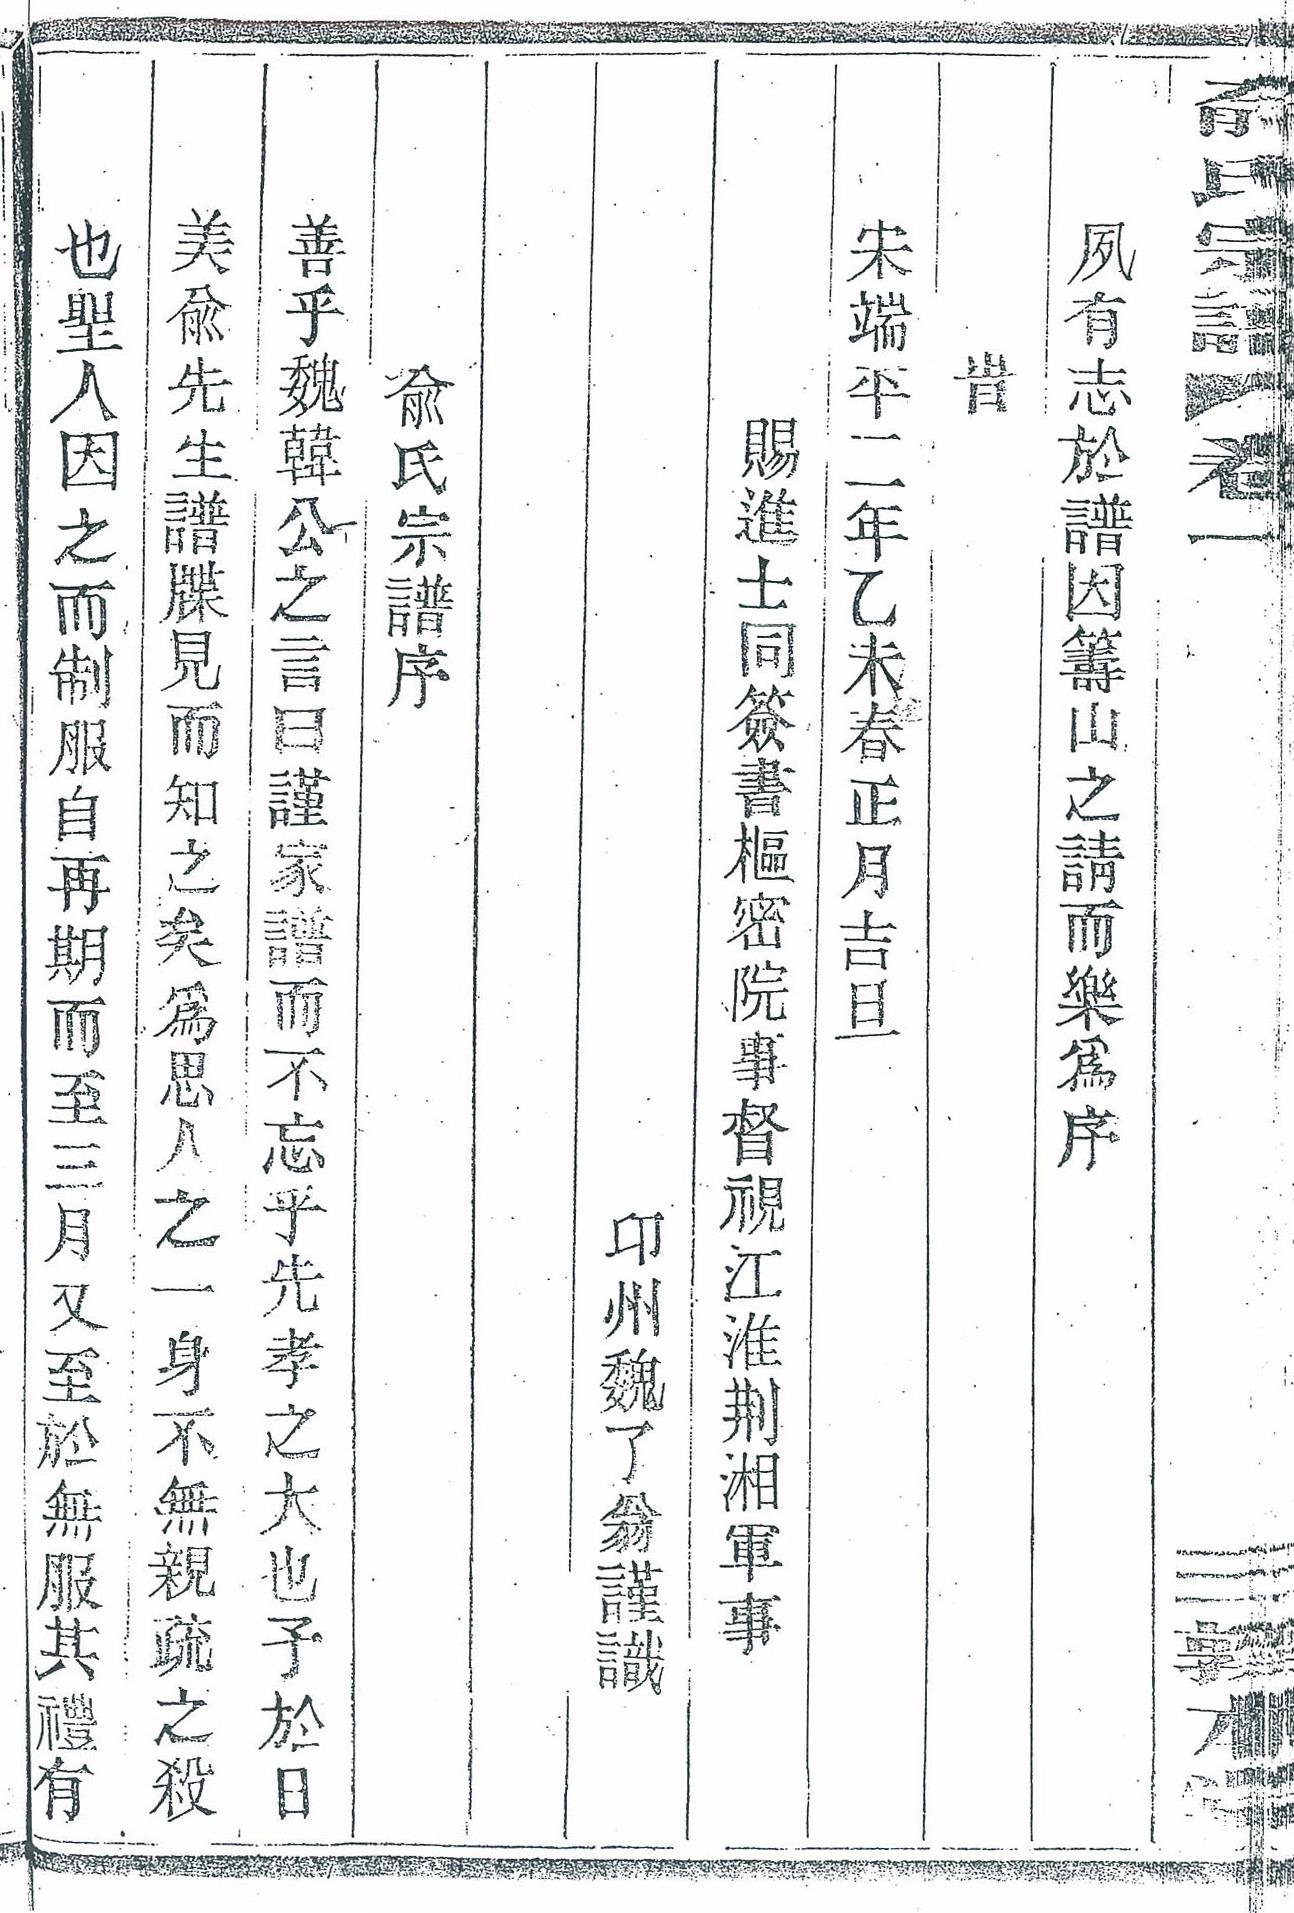 俞氏宗譜 卷一
夙有志於譜因籌山之請而樂爲序
旹
宋端平二年乙未春正月吉旦
賜進士同簽書樞密院事督視江淮荆湘軍事
卭州魏了翁謹識
俞氏宗譜序
善乎魏韓公之言曰謹家譜而不忘乎先孝之大也予於日
美俞先生譜牒見而知之矣爲思人之一身不無親疏之殺
也聖人因之而制服自再期而至三月又至於無服其禮有